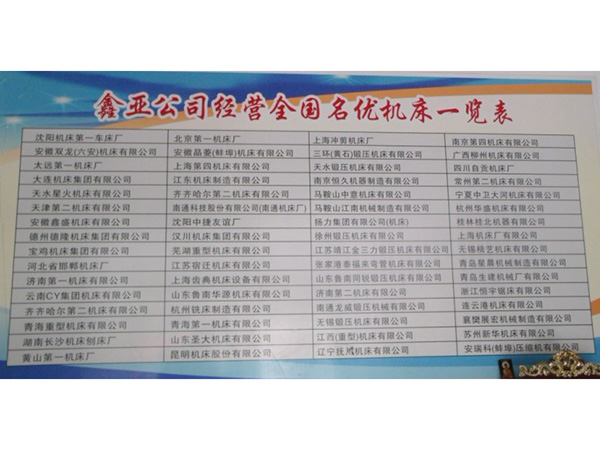 鑫亚公司经营全国名优机床一览表
沈阳机床第一车床厂 北京第一机床厂 上海冲剪机床厂 南京第四机床有限公司
安徽双龙(六安)机床有限公司 安徽晶菱(蚌埠)机床有限公司 三环(黄石)锻压机床有限公司 广西柳州机床有限公司
太远第一机床厂 上海第四机床有限公司 天水锻压机床有限公司 四川自贡机床厂
大连机床集团有限公司 江东机床制造有限公司 南京恒久机器制造有限公司 常州第二机床有限公司
天水星火机床有限公司 齐齐哈尔第二机床有限公司 马鞍山中意机床有限公司 宁夏中卫大河机床有限公司
天津第二机床有限公司 南通科技股份有限公司(南通机床厂) 马鞍山江南机械制造有限公司 杭州华盛机床有限公司
安徽鑫盛机床有限公司 沈阳中捷友谊厂 扬力集团有限公司(机床) 桂林桂北机器有限公司
德州德隆机床集团有限公司 汉川机床集团有限公司 徐州锻压机床有限公司 上海机床厂有限公司
宝鸡机床集团有限公司 芜湖重型机床有限公司 江苏靖江金三力锻压机床有限公司 无锡精艺机床有限公司
河北省邯郸机床厂 江苏宿迁机床有限公司 张家港泰福来弯管机床有限公司 青岛星晨机械制造有限公司
济南第一机床有限公司 上海齿典机床设备有限公司 山东鲁南同锐锻压机床有限公司 青岛生建机械厂有限公司
云南CY集团机床有限公司 山东鲁南华源机床有限公司 济南第二机床有限公司 浙江恒宇锯床有限公司
齐齐哈尔机床有限公司 杭州铣床制造有限公司 南通龙威锻压机械有限公司 连云港机床有限公司
青海重型机床有限公司 青海第一机床有限公司 无锡锻压机床有限公司 襄樊展宏机械制造有限公司
湖南长沙机床刨床厂 山东圣大机床有限公司 江西(重型)机床有限公司 苏州新华机床有限公司
黄山第一机床厂 昆明机床股份有限公司 辽宁抚机床有限公司 安瑞科(蚌埠)压缩机有限公司